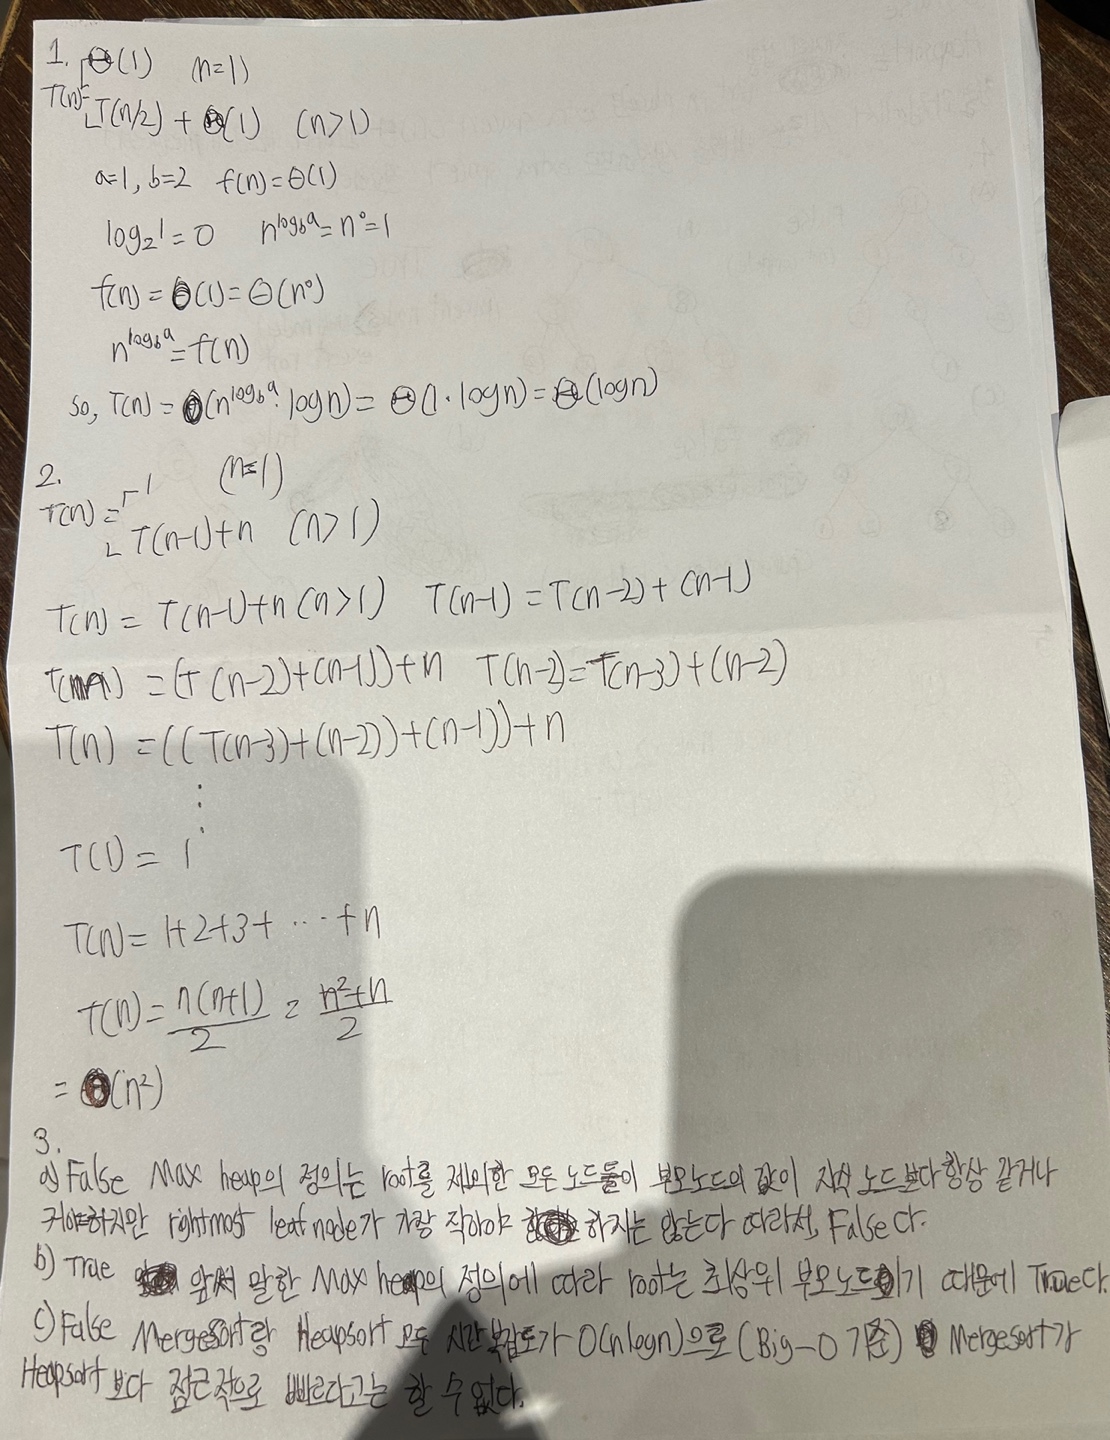 1. Θ(1) (n=1)
T(n)= T(n/2) + Θ(1) (n>1)
a=1, b=2 f(n)=Θ(1)
log₂1=0 n^(log_b a)=n⁰=1
f(n)=Θ(1)=Θ(n⁰)
n^(log_b a)=f(n)
so, T(n)=Θ(n^(log_b a)·logn)=Θ(1·logn)=Θ(logn)
2.
1 (n=1)
T(n)=
T(n-1)+n (n>1)
T(n)=T(n-1)+n (n>1) T(n-1)=T(n-2)+(n-1)
=(T(n-2)+(n-1))+n T(n-2)=T(n-3)+(n-2)
T(n)=((T(n-3)+(n-2))+(n-1))+n
⋮
T(1)=1
T(n)=1+2+3+···+n
T(n)=n(n+1)/2=n²+n/2
=Θ(n²)
3.
a) False Max heap의 정의는 root를 제외한 모든 노드들이 부모노드의 값이 자식 노드보다 항상 같거나
커야하지만 rightmost leaf node가 가장 작아야 하지는 않는다 따라서, False다.
b) True 앞서 말한 Max heap의 정의에 따라 root는 최상위 부모노드이기 때문에 True다.
c) False MergeSort랑 Heapsort 모두 시간 복잡도가 O(nlogn)으로 (Big-O 기준) Mergesort가
Heapsort 보다 점근적으로 빠르다고는 할 수 없다.